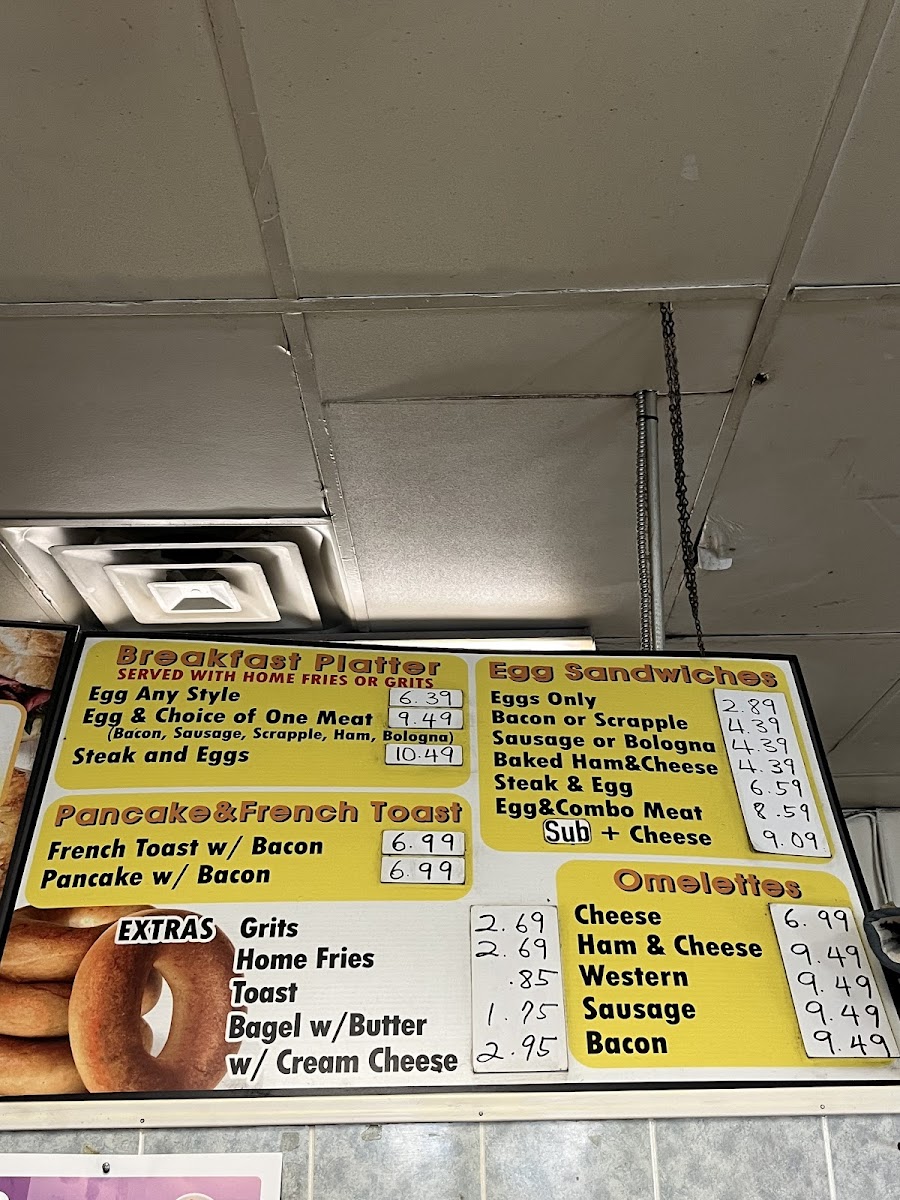 Breakfast Platter
SERVED WITH HOME FRIES OR GRITS
Egg Any Style 6.39
Egg & Choice of One Meat 9.49
(Bacon, Sausage, Scrapple, Ham, Bologna)
Steak and Eggs 10.49
Pancake&French Toast
French Toast w/ Bacon 6.99
Pancake w/ Bacon 6.99
EXTRAS Grits 2.69
Home Fries 2.69
Toast .85
Bagel w/Butter 1.75
w/ Cream Cheese 2.95
Egg Sandwiches
Eggs Only 2.89
Bacon or Scrapple 4.39
Sausage or Bologna 4.39
Baked Ham&Cheese 4.39
Steak & Egg 6.59
Egg&Combo Meat 8.59
Sub + Cheese 9.09
Omelettes
Cheese 6.99
Ham & Cheese 9.49
Western 9.49
Sausage 9.49
Bacon 9.49